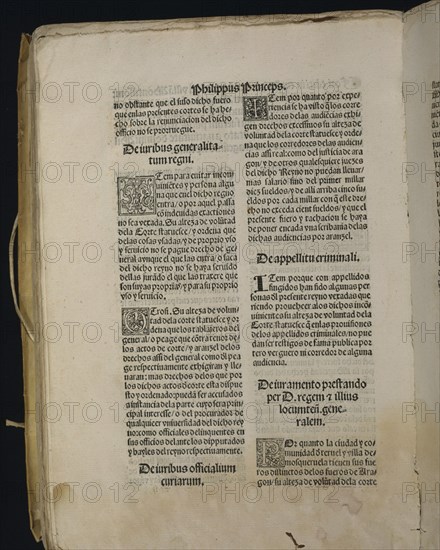 Philippus Princeps.
no obstante que el suso dicho fuero
que en las presentes cortes se ha he-
cho sobre la renunciacion del dicho
officio no se prorrogue.
De iuribus generalita-
tum regni.
Item para euitar incon-
uinientes y persona algu-
na que en el dicho reyno
entra, o por aquel passa
co~ induuidas exactiones
no sea vexada. Su alteza de volu~t
d la Corte statuesce, y ordena que
de las cosas vsadas, y de proprio vso
y seruicio no se pague drecho de gene-
ral aunque el que las entra, o saca
del dicho reyno no se haya seruido
dellas jura~do el que las traxere que
son suyas proprias, y para su proprio
vso y seruicio.
Otrosi. Su alteza de volun-
tad de la corte statuesce, y or-
dena que los tablajeros del
general, o peage que co~tra tenor de-
los actos de corte, y aranzel de los
drechos assi del general como di pea-
ge respectiuamente exhigiran y lle-
uaran: mas drechos delos que por
los dichos actos d corte esta dispue-
sto y ordenado: pueda ser accusados
a instancia dela parte cuyo sera prin-
cipal interesse, o del procurador de
qualquier vniuersidad del dicho rey-
no: como officiales delinquentes en
sus officios delante los diputados
y bayles del reyno respectiuamente.
De iuribus officialium
curiarum.
Item por quanto por expe-
riencia se ha visto q~ los corre-
dores delas audiencias exhi-
gen drechos excessiuos su alteza de
voluntad dela corte statuesce y ordena
que los corredores delas audiencias
assi real: como del justicia de ara-
gon, y de otros qualesquiere juezes
del dicho Reyno no puedan lleuar:
mas salario sino del primer millar
diez sueldos, y de alli arriba cinco suel-
dos por cada millar con q~ este dre-
cho no exceda cient sueldos, y que el
presente fuero y tachacion se haya
de poner en cada vna scribania de las
dichas audiencias por aranzel.
De appellitu criminali.
Item porque con appellidos
fingidos han sido algunas per-
sonas dl presente reyno vexadas que
riendo proueher a los dichos incon-
uinientes su alteza de voluntad de la
Corte statuesce q~ en las prouisiones
delos appellidos criminales, no pue-
dan ser restigos de fama publica por
tero verguero ni corredor de alguna
audiencia.
De iuramento prestando
per D. regem & illius
locumten~. gene-
ralem.
Por quanto la ciudad y co-
munidad d teruel y villa de
mosqueruela tienen sus fue-
ros distinctos delos fueros de Ara-
gon, su alteza de volu~tad dela corte